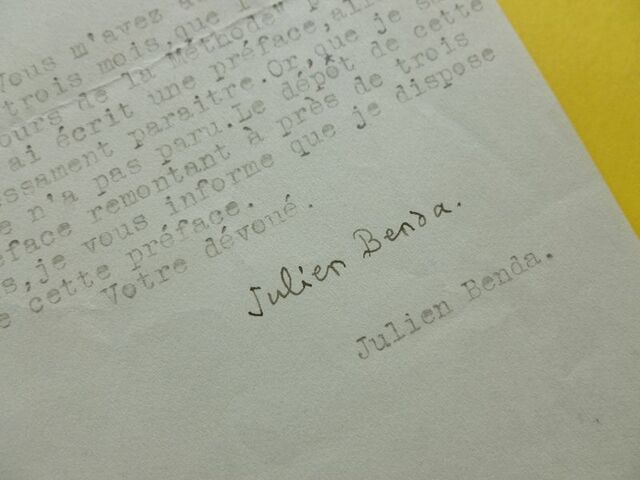 Vous m'avez a
trois mois, que l'
ours de la Méthode"
ai écrit une préface, all
essament paraitre. Or, que je sa
e n'a pas paru. Le dépôt de cette
éface remontant à près de trois
s, je vous informe que je dispose
e cette préface.
Votre dévoué.
Julien Benda.
Julien Benda.